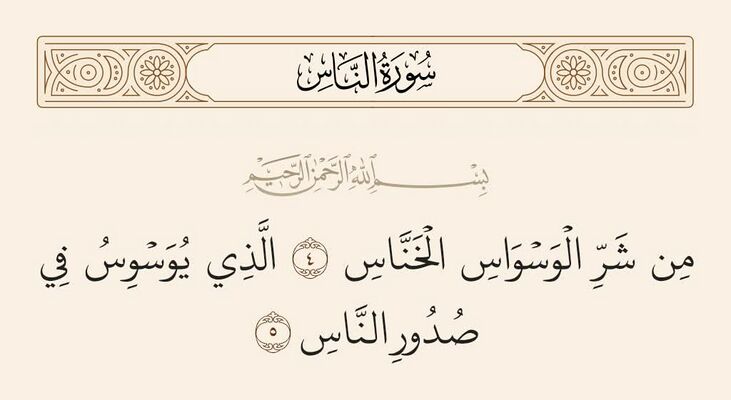 سُورَةُ النَّاسِ
بِسْمِ اللَّهِ الرَّحْمَٰنِ الرَّحِيمِ
مِن شَرِّ الْوَسْوَاسِ الْخَنَّاسِ ٤ الَّذِي يُوَسْوِسُ فِي
صُدُورِ النَّاسِ ٥